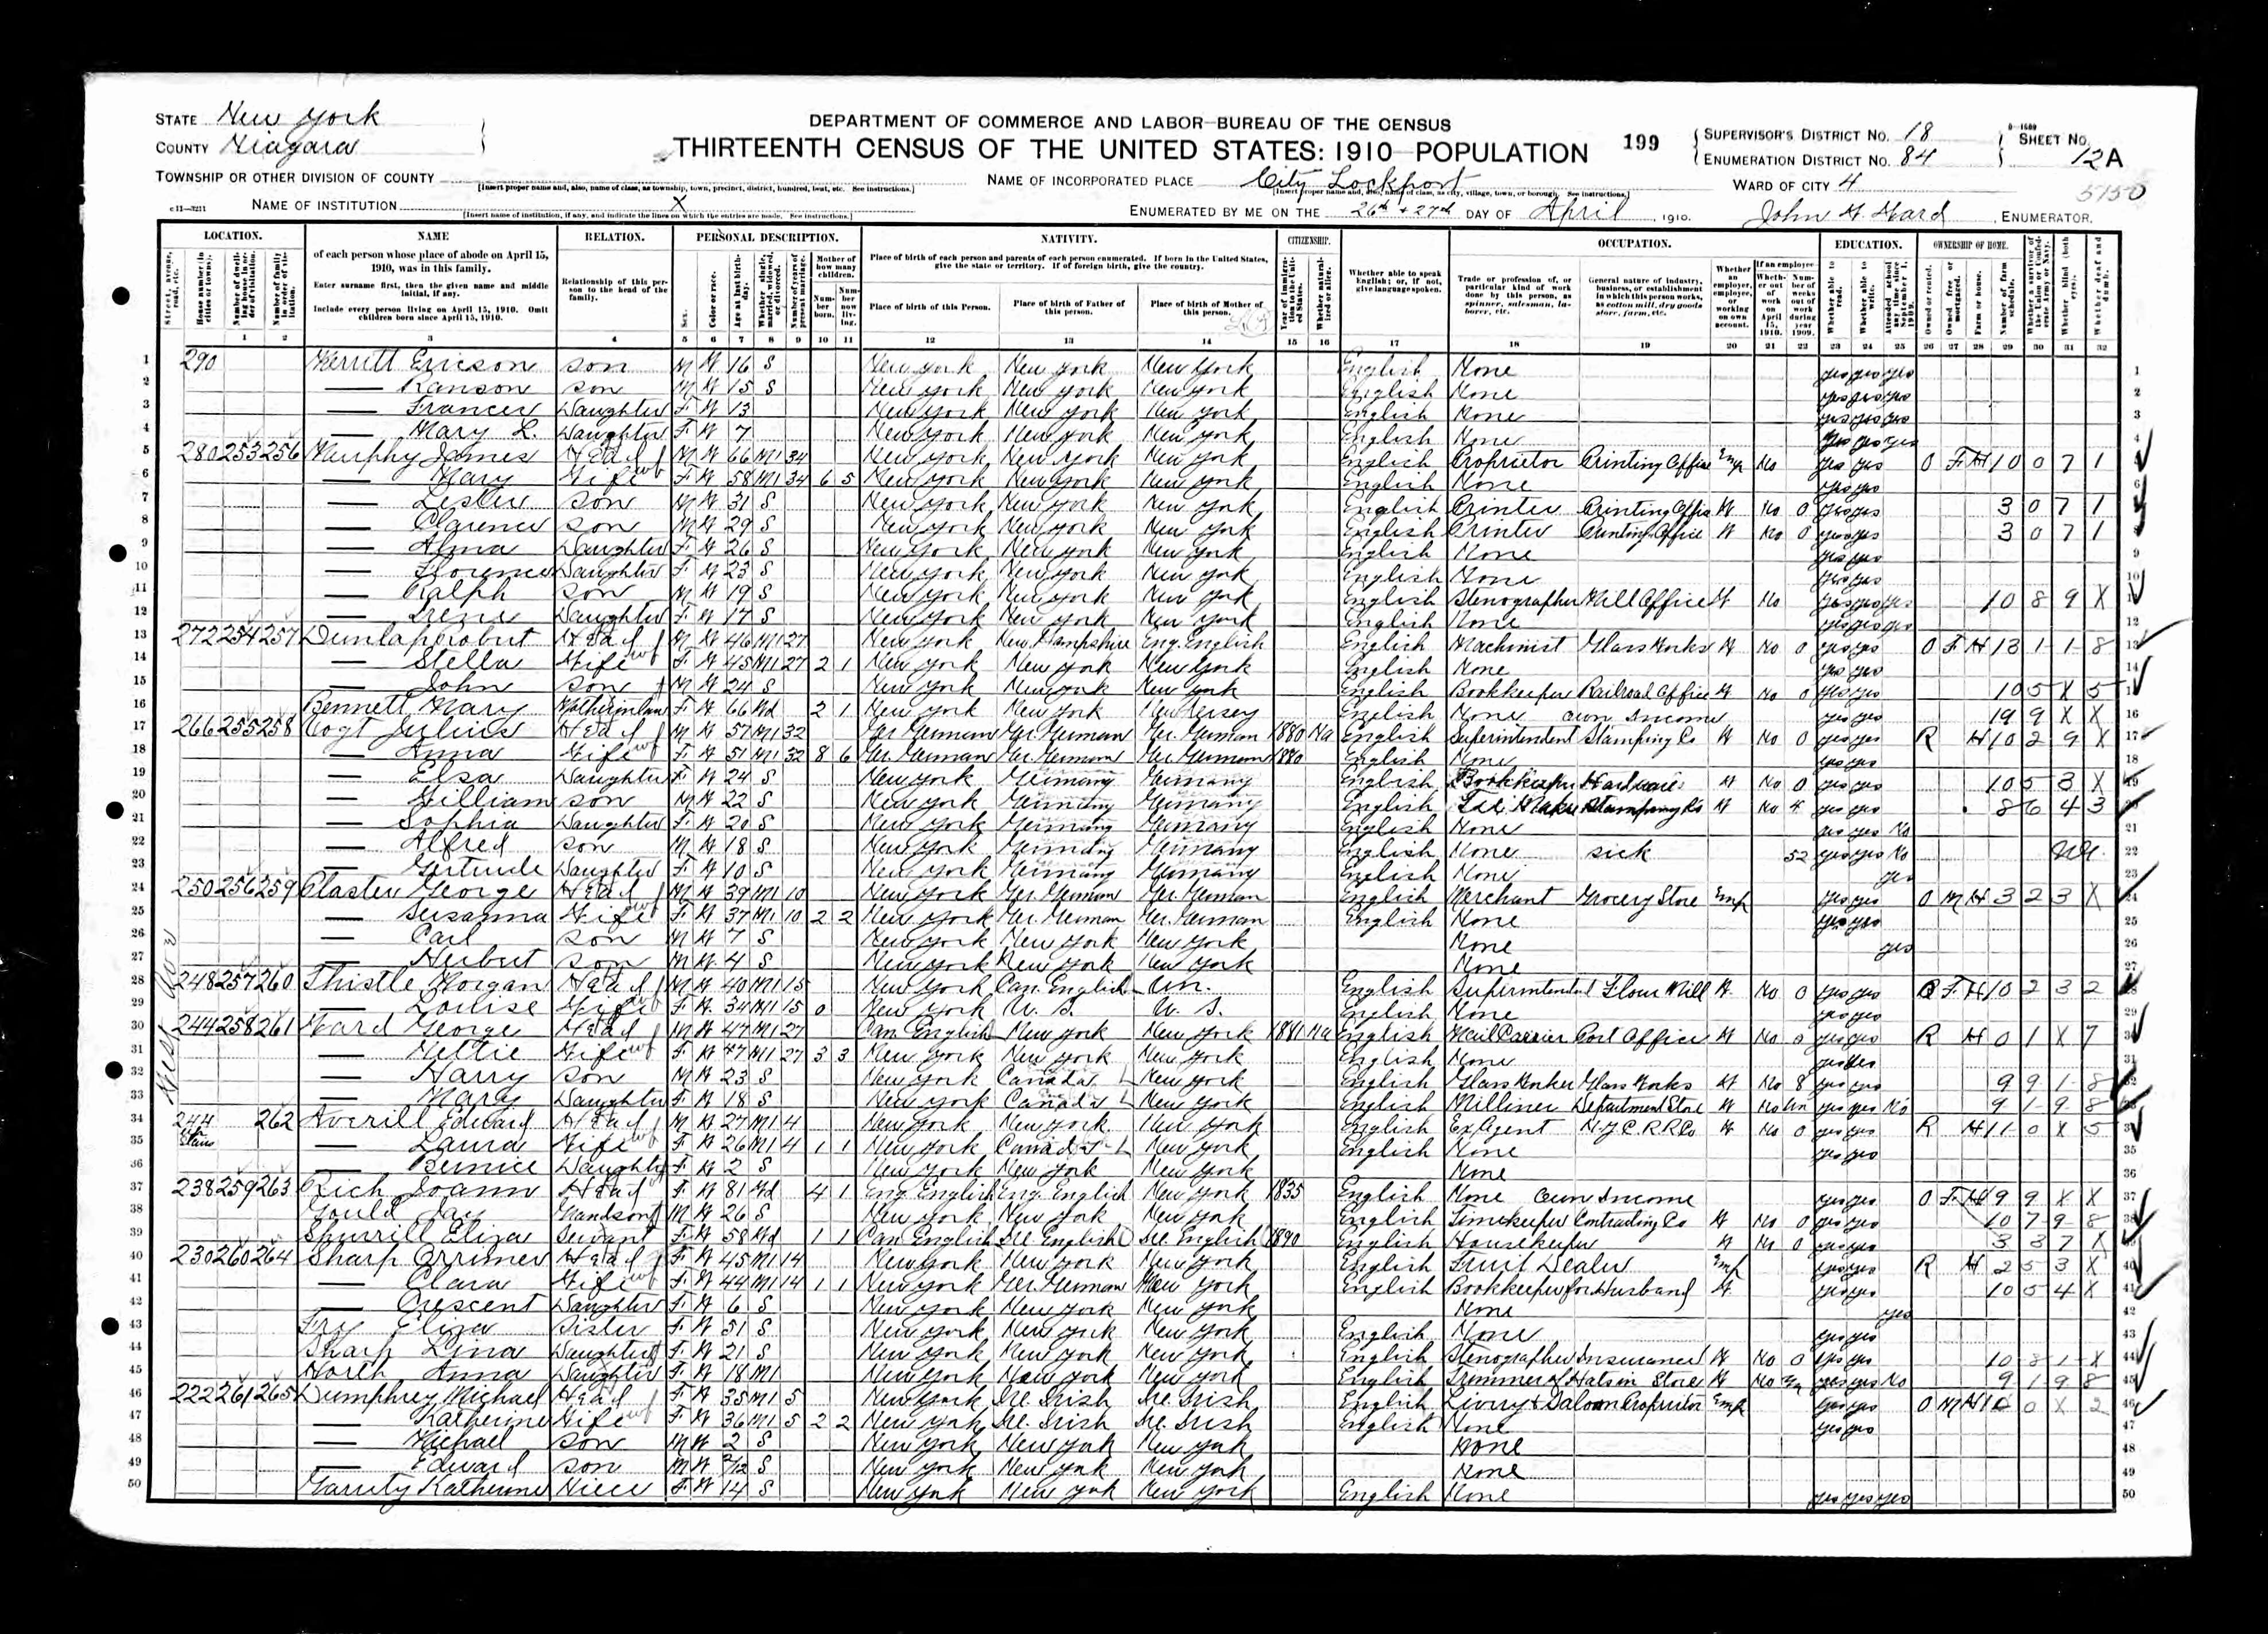 STATE New York
COUNTY Niagara
TOWNSHIP OR OTHER DIVISION OF COUNTY
[Insert proper name and, also, name of class, as township, town, precinct, district, hundred, beat, etc. See instructions.]
NAME OF INSTITUTION X
[Insert name of institution, if any, and indicate the lines on which the entries are made. See instructions.]
DEPARTMENT OF COMMERCE AND LABOR—BUREAU OF THE CENSUS
THIRTEENTH CENSUS OF THE UNITED STATES: 1910—POPULATION
199
NAME OF INCORPORATED PLACE City Lockport
[Insert proper name and, also, name of class, as city, village, town, or borough. See instructions.]
ENUMERATED BY ME ON THE 26th + 27th DAY OF April, 1910.
SUPERVISOR'S DISTRICT No. 18
ENUMERATION DISTRICT No. 84
SHEET No. 12A
WARD OF CITY 4
5150
ENUMERATOR.
LOCATION. NAME RELATION. PERSONAL DESCRIPTION. NATIVITY. CITIZENSHIP. OCCUPATION. EDUCATION. OWNERSHIP OF HOME.
of each person whose place of abode on April 15, 1910, was in this family.
Enter surname first, then the given name and middle initial, if any.
Include every person living on April 15, 1910. Omit children born since April 15, 1910.
Relationship of this person to the head of the family.
Place of birth of each person and parents of each person enumerated. If born in the United States, give the state or territory. If of foreign birth, give the country.
Place of birth of this Person. Place of birth of Father of this person. Place of birth of Mother of this person.
Whether able to speak English; or, if not, give language spoken.
Trade or profession of, or particular kind of work done by this person, as spinner, salesman, laborer, etc.
General nature of industry, business, or establishment in which this person works, as cotton mill, dry goods store, farm, etc.
1 290 Merritt Ericson son M W 16 S New York New York New York English None yes yes yes
2 — Ranson son M W 15 S New York New York New York English None yes yes yes
3 — Frances Daughter F W 13 New York New York New York English None yes yes yes
4 — Mary L. Daughter F W 7 New York New York New York English None yes yes yes
5 280 253 256 Murphy James Head M W 66 M1 34 New York New York New York English Proprietor Printing Office Emp No yes yes O F H 10 0 7 1
6 — Mary Wife F W 58 M1 34 6 5 New York New York New York English None yes yes
7 — Lester son M W 31 S New York New York New York English Printer Printing Office W No 0 yes yes 3 0 7 1
8 — Clarence son M W 29 S New York New York New York English Printer Printing Office W No 0 yes yes 3 0 7 1
9 — Daughter F W 26 S New York New York New York English None yes yes
10 — Florence Daughter F W 23 S New York New York New York English None yes yes
11 — Ralph son M W 19 S New York New York New York English Stenographer Mill Office W No yes yes yes 10 8 9 X
12 — Irene Daughter F W 17 S New York New York New York English None yes yes yes
13 272 254 257 Dunlap Robert Head M W 46 M1 27 New York New Hampshire Eng. English English Machinist Glass Works W No 0 yes yes O F H 13 1 1 8
14 — Stella Wife F W 45 M1 27 2 1 New York New York New York English None yes yes
15 — John son M W 24 S New York New York New York English Bookkeeper Railroad Office W No 0 yes yes 10 5 X 5
16 Bennett Mary Motherinlaw F W 66 Wd 2 1 New York New York New Jersey English None own Income yes yes 19 9 X X
17 266 255 258 Vogt Julius Head M W 57 M1 32 Ger. German Ger. German Ger. German 1880 Na English Superintendent Stamping Co W No 0 yes yes R H 10 2 9 X
18 — Anna Wife F W 51 M1 32 8 6 Ger. German Ger. German Ger. German 1880 English None yes yes
19 — Elsa Daughter F W 24 S New York Germany Germany English Bookkeeper Hardware W No 0 yes yes 10 5 3 X
20 — William son M W 22 S New York Germany Germany English Stamping Co W No 4 yes yes 8 6 4 3
21 — Sophia Daughter F W 20 S New York Germany Germany English None yes yes No
22 — Alfred son M W 18 S New York Germany Germany English None sick 52 yes yes No
23 — Gertrude Daughter F W 10 S New York Germany Germany English None yes
24 250 256 259 Plaster George Head M W 39 M1 10 New York Ger. German Ger. German English Merchant Grocery Store Emp yes yes O M H 3 2 3 X
25 — Susanna Wife F W 37 M1 10 2 2 New York Ger. German Ger. German English None yes yes
26 — Carl son M W 7 S New York New York New York None yes
27 — Herbert son M W 4 S New York New York New York None
28 248 257 260 Thistle Morgan Head M W 40 M1 15 New York Can. English Un. English Superintendent Flour Mill W No 0 yes yes O F H 10 2 3 2
29 — Louise Wife F W 34 M1 15 0 New York U. S. U. S. English None yes yes
30 244 258 261 Ward George Head M W 47 M1 27 Can English New York New York Na English Mail Carrier Post Office W No 0 yes yes R H 0 1 X 7
31 — Nettie Wife F W 47 M1 27 3 3 New York New York New York English None yes yes
32 — Harry son M W 23 S New York Canada New York English Glass Worker Glass Works W No 8 yes yes 9 9 1 8
33 — Mary Daughter F W 18 S New York Canada New York English Milliner Department Store W No Un yes yes No 9 1 9 8
34 244 262 Averill Edward Head M W 27 M1 4 New York New York New York English Ex Agent N.Y.C.R.R.Co W No 0 yes yes R H 11 0 X 5
35 — Laura Wife F W 26 M1 4 1 1 New York Canada New York English None yes yes
36 — Bernice Daughter F W 2 S New York New York New York None
37 238 259 263 Rich Joann Head F W 81 Wd 4 1 Eng. English Eng. English New York 1835 English None Own Income yes yes O F H 9 9 X X
38 Gould Jay Grandson M W 26 S New York New York New York English Timekeeper Contracting Co W No 0 yes yes 10 7 9 8
39 Eliza Servant F W 58 Wd 1 1 Can English Ire English Ire English 1890 English Housekeeper W No 0 yes yes 3 3 7 X
40 230 260 264 Sharp Orrimer Head F W 45 M1 14 New York New York New York English Fruit Dealer Emp yes yes R H 2 5 3 X
41 — Clara Wife F W 44 M1 14 1 1 New York Ger. German New York English Bookkeeper for Husband W yes yes 10 5 4 X
42 — Crescent Daughter F W 6 S New York New York New York None yes
43 Fry Eliza Sister F W 51 S New York New York New York English None yes yes
44 Sharp Lina Daughter F W 21 S New York New York New York English Stenographer Insurance W No 0 yes yes 10 8 1 X
45 North Anna Daughter F W 18 M1 New York New York New York English Trimmer of Hats in Store W No yes yes No 9 1 9 8
46 222 261 265 Dumphrey Michael Head F W 35 M1 5 New York Ire. Irish Ire. Irish English Livery + Saloon Proprietor Emp yes yes O M H 0 X 2
47 — Katherine Wife F W 36 M1 5 2 2 New York Ire. Irish Ire. Irish English None yes yes
48 — Michael son M W 2 S New York New York New York None
49 — Edward son M W 2/12 S New York New York New York None
50 Garrity Katherine Niece F W 14 S New York New York New York English None yes yes yes